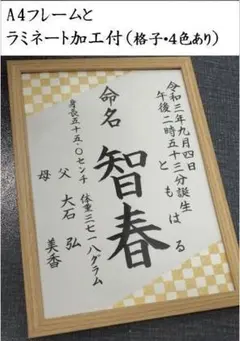 A4フレームと
ラミネート加工付(格子・4色あり)
令和三年九月四日
午後二時五十三分誕生
ともはる
命名 智春
身長五十五・〇センチ 体重三七一八グラム
父 大石 弘
母 美香